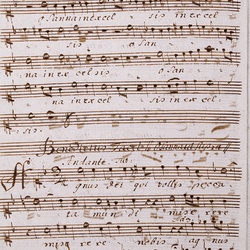 osanna in excel sis in excel
sis o san
na in excel sis o san
na in excel sis in excel
sis.
Benedictus Tacet
Andante
Agnus dei qui tollis pecca
ta mun di mise rere
mise rere nobis agnus